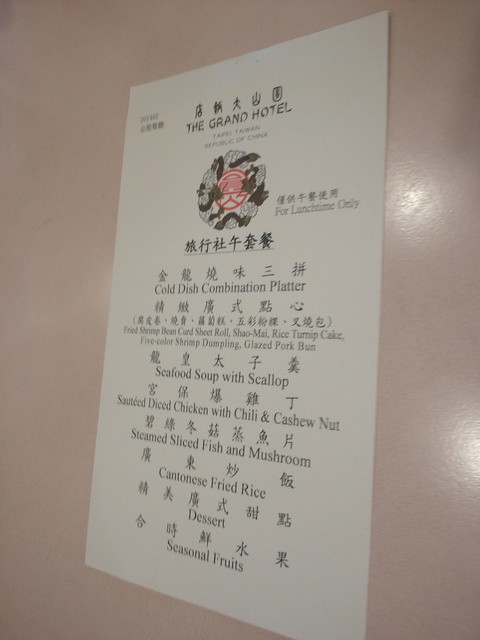 金龍餐廳
店飯大山圓
THE GRAND HOTEL
TAIPEI, TAIWAN
REPUBLIC OF CHINA
僅供午餐使用
For Lunchtime Only
旅行社午套餐
金龍燒味三拼
Cold Dish Combination Platter
精緻廣式點心
（腐皮卷、燒賣、蘿蔔糕、五彩粉粿、叉燒包）
Fried Shrimp Bean Curd Sheet Roll, Shao-Mai, Rice Turnip Cake,
Five-color Shrimp Dumpling, Glazed Pork Bun
龍皇太子羹
Seafood Soup with Scallop
宮保爆雞丁
Sautéed Diced Chicken with Chili & Cashew Nut
碧綠冬菇蒸魚片
Steamed Sliced Fish and Mushroom
廣東炒飯
Cantonese Fried Rice
精美廣式甜點
Dessert
合時鮮水果
Seasonal Fruits